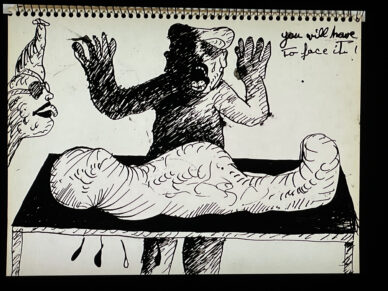 you will have
to face it !